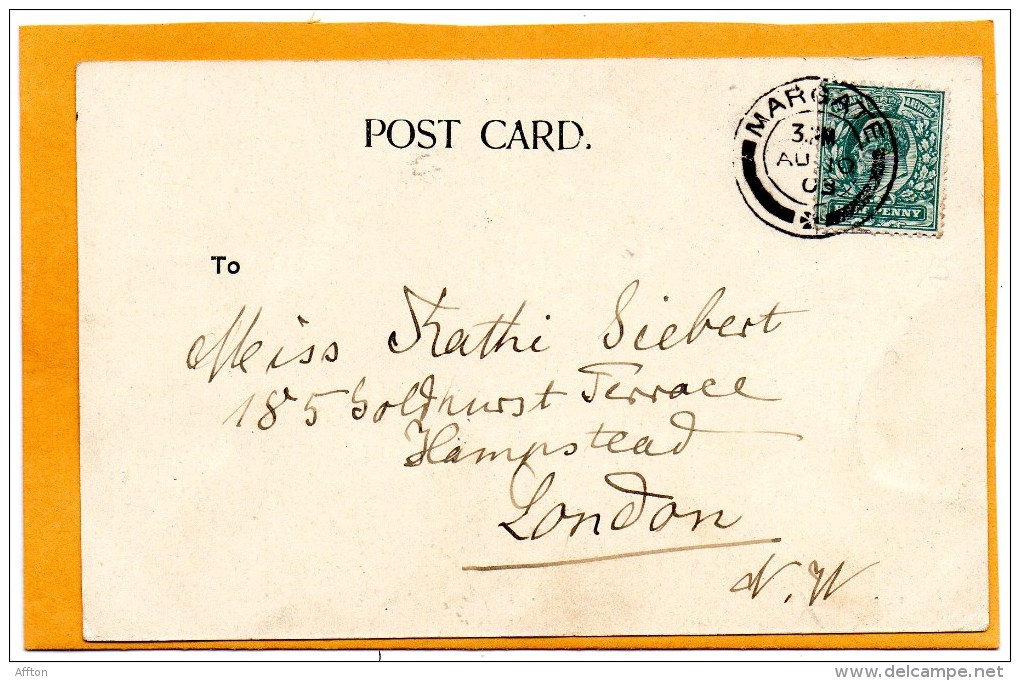 POST CARD.
MARGATE
& REVENUE
HALFPENNY
To
Miss Kathi Siebert
185 Goldhurst Terrace
Hampstead
London
N.W
Affton
www.delcampe.net